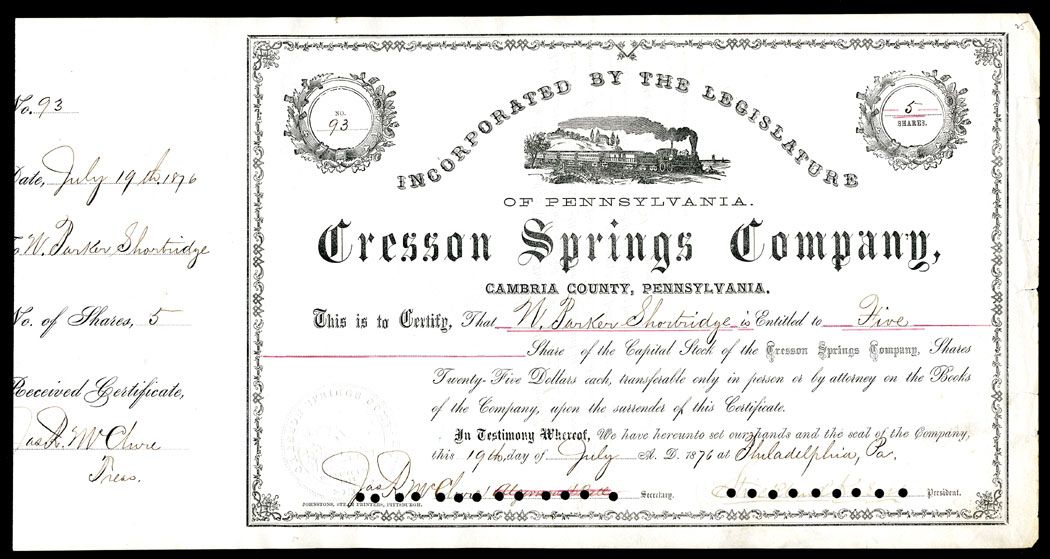 No. 93
Date, July 19th 1876
To W. Parker Shortridge
No. of Shares, 5
Received Certificate,
Jas. R. McClure
Treas.
NO.
93
5
SHARES.
INCORPORATED BY THE LEGISLATURE
OF PENNSYLVANIA.
Cresson Springs Company,
CAMBRIA COUNTY, PENNSYLVANIA.
This is to Certify, That W. Parker Shortridge is Entitled to Five
Share of the Capital Stock of the Cresson Springs Company, Shares
Twenty-Five Dollars each, transferable only in person or by attorney on the Books
of the Company, upon the surrender of this Certificate.
In Testimony Whereof, We have hereunto set our hands and the seal of the Company,
this 19th day of July A. D. 1876 at Philadelphia, Pa.
Jas R McClure Secretary. President.
JOHNSTONS, STEAM PRINTERS, PITTSBURGH.